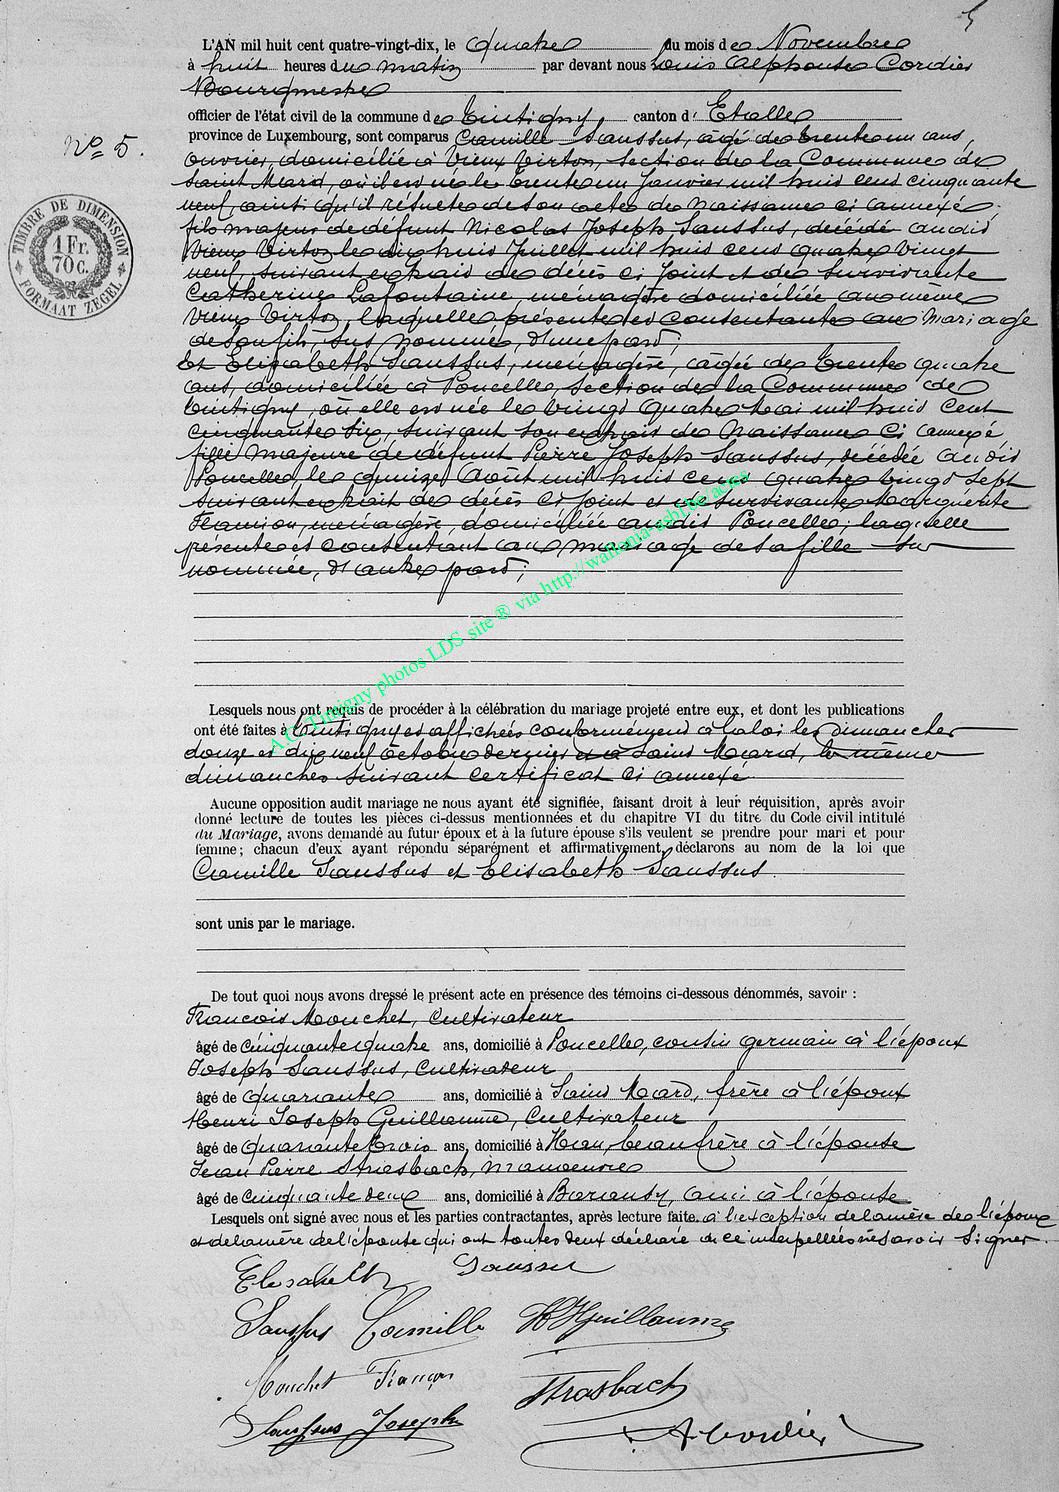 5
L'AN mil huit cent quatre-vingt-dix, le quatre du mois de Novembre
à huit heures du matin par devant nous Louis Alphonse Cordier
Bourgmestre
officier de l'état civil de la commune de Tintigny, canton d'Etalle
province de Luxembourg, sont comparus Camille Saussus, âgé de trente un ans,
Nº 5.
ouvrier, domicilié à Vieux Virton, section de la Commune de
Saint Mard, où il est né le trente un Janvier mil huit cent cinquante
neuf, ainsi qu'il résulte de son acte de Naissance ci annexé
fils majeur de défunt Nicolas Joseph Saussus, décédé audit
Vieux Virton le dix huit Juillet mil huit cent quatre vingt
neuf, suivant extrait de décès ci joint et de survivante
Catherine Lafontaine, ménagère domiciliée au même
Vieux Virton, laquelle présente et consentante au mariage
de son fils, sus nommé, d'une part;
Et Elisabeth Saussus, ménagère, âgée de trente quatre
ans, domiciliée à Poncelle, section de la Commune de
Tintigny, où elle est née le vingt quatre Mai mil huit cent
cinquante six, suivant son extrait de Naissance ci annexé
fille majeure de défunt Pierre Joseph Saussus, décédé audit
Poncelle, le quinze Août mil huit cent quatre vingt sept
suivant extrait de décès ci joint et de survivante Marguerite
ménagère, domiciliée audit Poncelle; laquelle
présente et consentant au mariage de sa fille sus
nommée, d'autre part;
TIMBRE DE DIMENSION
1 Fr. 70 c.
FORMAAT ZEGEL
A.C. Tintigny photos LDS site ® via http://wallonia-asbl.be/actes
Lesquels nous ont requis de procéder à la célébration du mariage projeté entre eux, et dont les publications
ont été faites à Tintigny et affichées conformément à la loi les dimanches
douze et dix neuf Octobre dernier et à Saint Mard, les mêmes
dimanches suivant certificat ci annexé
Aucune opposition audit mariage ne nous ayant été signifiée, faisant droit à leur réquisition, après avoir
donné lecture de toutes les pièces ci-dessus mentionnées et du chapitre VI du titre du Code civil intitulé
du Mariage, avons demandé au futur époux et à la future épouse s'ils veulent se prendre pour mari et pour
femme; chacun d'eux ayant répondu séparément et affirmativement, déclarons au nom de la loi que
Camille Saussus et Elisabeth Saussus.
sont unis par le mariage.
De tout quoi nous avons dressé le présent acte en présence des témoins ci-dessous dénommés, savoir :
François Mouchet, Cultivateur
âgé de cinquante quatre ans, domicilié à Poncelle, cousin germain à l'époux
Joseph Saussus, Cultivateur
âgé de quarante ans, domicilié à Saint Mard, frère à l'époux
Henri Joseph Guillaume, Cultivateur
âgé de quarante trois ans, domicilié à Han, beau frère à l'épouse
Jean Pierre Strasbach, manœuvre
âgé de cinquante deux ans, domicilié à Baranzy, ami à l'épouse
Lesquels ont signé avec nous et les parties contractantes, après lecture faite. à l'exception de la mère de l'époux
et de la mère de l'épouse qui ont toutes deux déclaré de ce interpellées ne savoir signer.
Elisabeth Saussus
Saussus Camille HJGuillaume
Mouchet François
Strasbach
Saussus Joseph
A Cordier